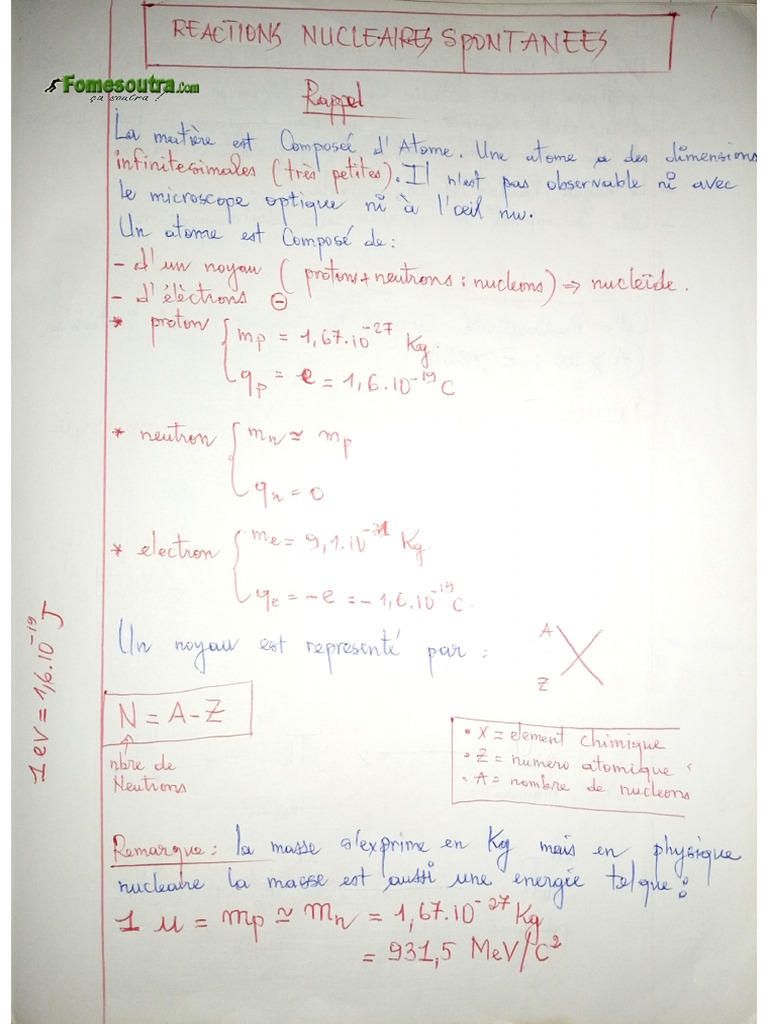 REACTIONS NUCLEAIRES SPONTANEES
Fomesoutra.Com
ça soutra !
Rappel
La matière est Composeé d'Atome. Une atome a des dimensions
infinitesimales (très petites). Il n'est pas observable ni avec
le microscope optique ni à l'œil nu.
Un atome est Composé de :
- d'un noyau (protons+neutrons : nucleons) => nucleïde.
- d'élèctrons ⊖
* proton { mp = 1,67.10^-27 Kg.
qp = e = 1,6.10^-19 C
* neutron { mn ≃ mp
qn = 0
* electron { me = 9,1.10^-31 Kg.
qe = -e = -1,6.10^-19 C.
Un noyau est representé par :
A
X
Z
N = A-Z
nbre de
Neutrons
• X = element chimique
• Z = numero atomique
• A = nombre de nucleons
1 ev = 1,6.10^-19 J
Remarque : la masse s'exprime en Kg mais en physique
nucleaire la masse est aussi une energie telque :
1 u = mp ≃ mn = 1,67.10^-27 Kg
= 931,5 MeV/C²